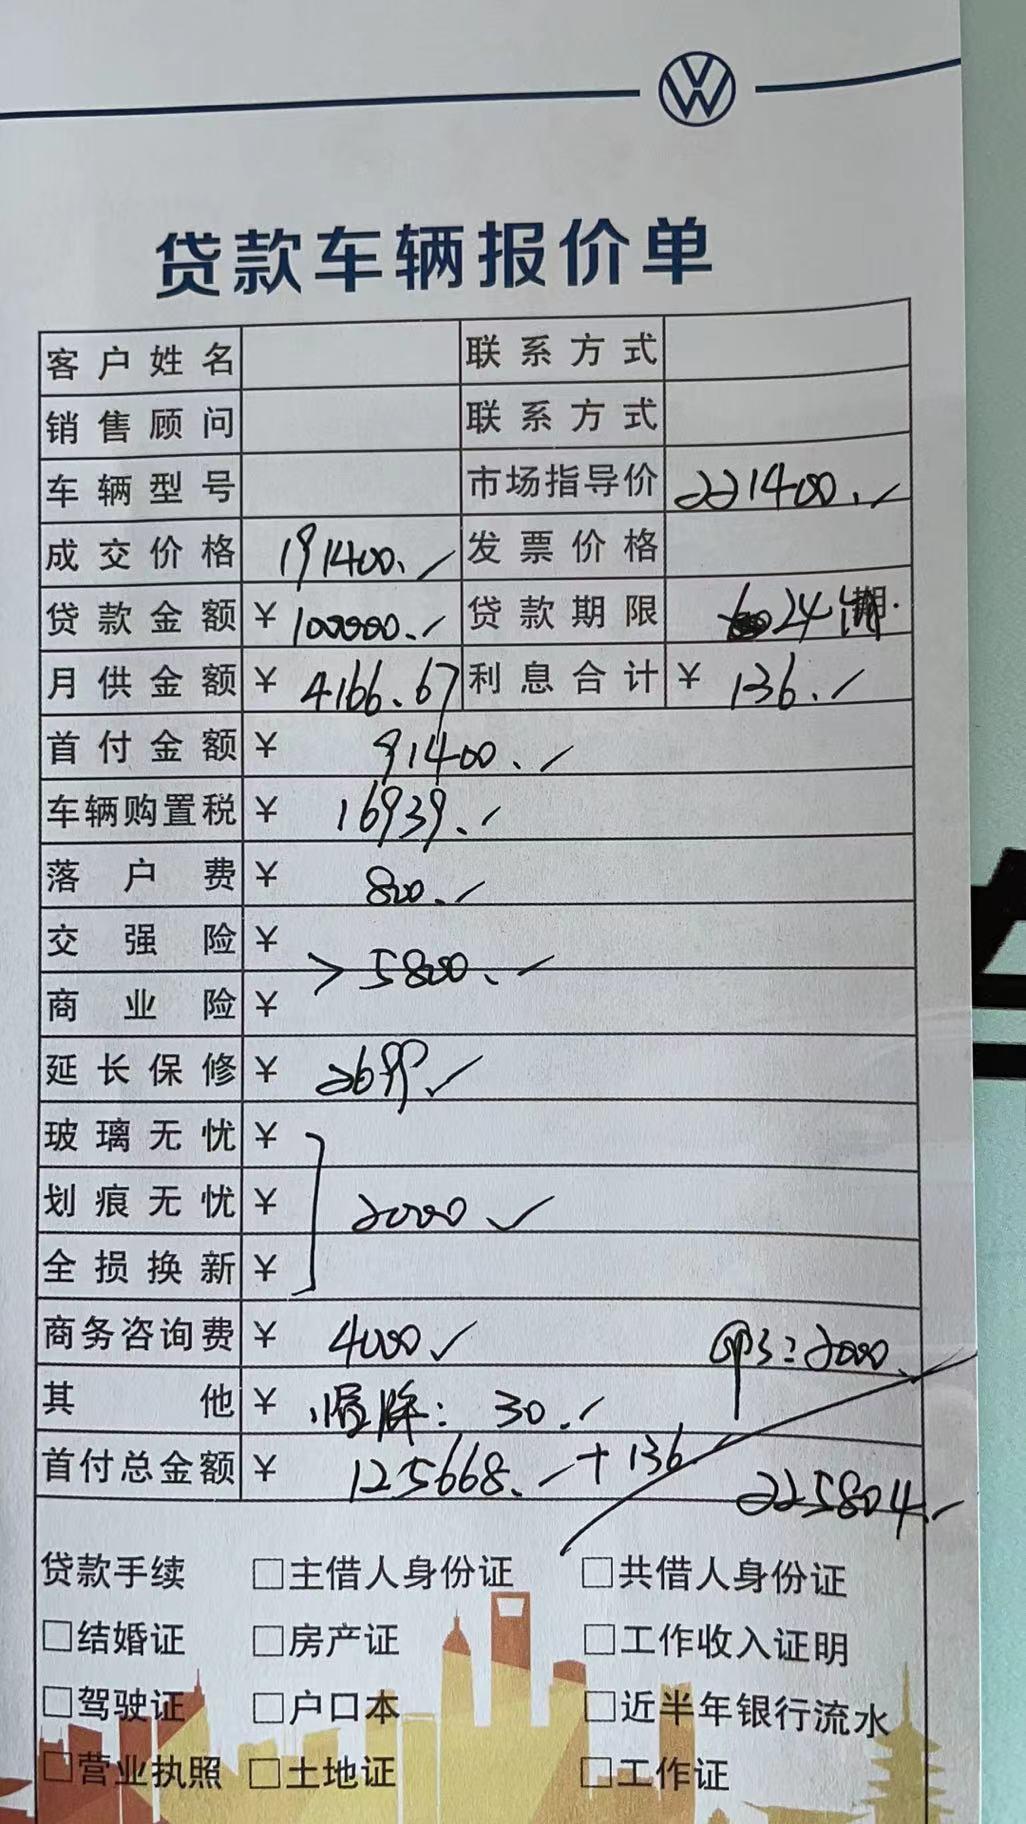 贷款车辆报价单
客户姓名 联系方式
销售顾问 联系方式
车辆型号 市场指导价 221400.
成交价格 191400. 发票价格
贷款金额 ¥ 100000. 贷款期限 24期.
月供金额 ¥ 4166.67 利息合计 ¥ 136.
首付金额 ¥ 91400.
车辆购置税 ¥ 16939.
落户费 ¥ 800.
交强险 ¥
> 5800.
商业险 ¥
延长保修 ¥ 2699
玻璃无忧 ¥
划痕无忧 ¥ 2000
全损换新 ¥
商务咨询费 ¥ 4000 GPS:2000
其他 ¥ : 30.
首付总金额 ¥ 125668. +136 225804.
贷款手续 □主借人身份证 □共借人身份证
□结婚证 □房产证 □工作收入证明
□驾驶证 □户口本 □近半年银行流水
□营业执照 □土地证 □工作证